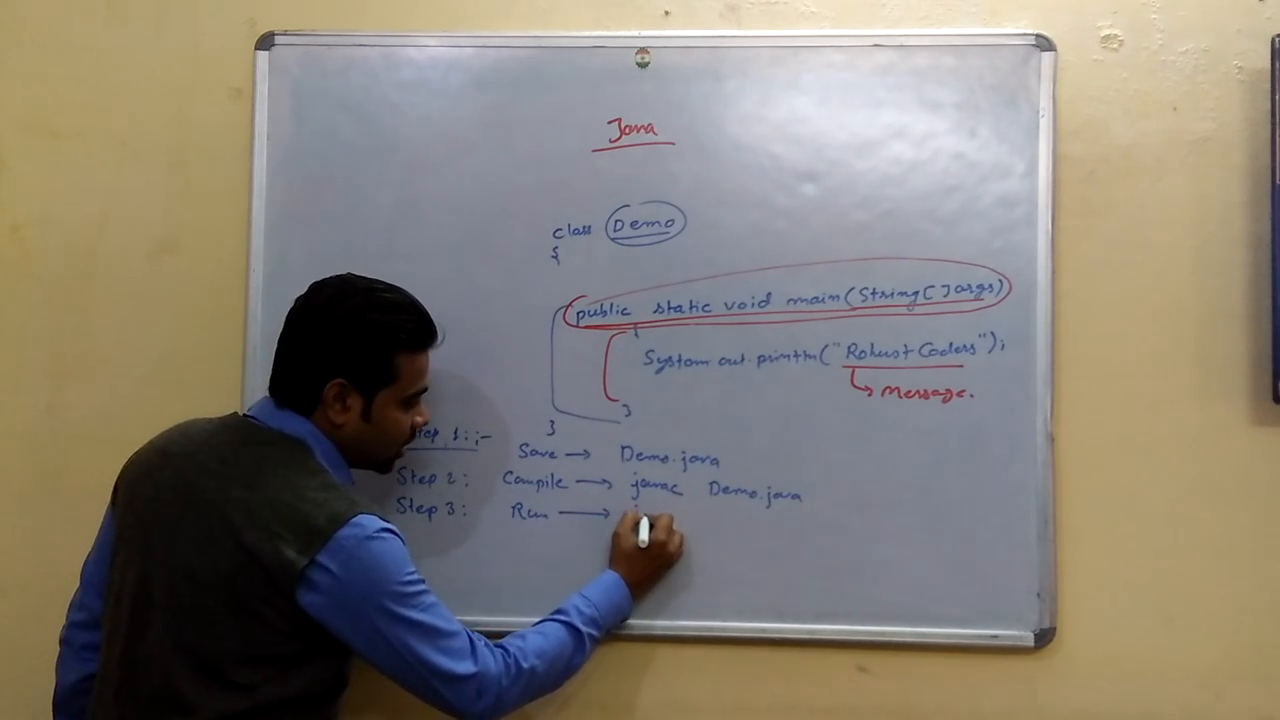 Java
class Demo
{
public static void main(String[]args)
{
System.out.println("Robust Coders");
message.
}
}
Step 1:;-
Save → Demo.java
Step 2: Compile → javac Demo.java
Step 3: Run →